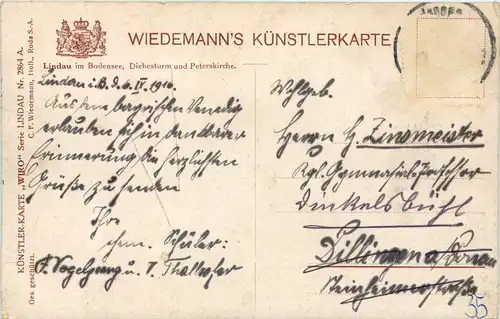 WIEDEMANN'S KÜNSTLERKARTE
Lindau im Bodensee, Dichesturm und Peterskirche.
KÜNSTLER-KARTE „WIRO" Serie LINDAU Nr. 2864 A.
C. F. Wiedemann, Hofl., Roda S.-A.
Ges. geschützt.
Lindau i.B. d. 6. IV. 1916.
Aus dem bayrischen Venedig
erlauben sich in dankbarer
Erinnerung die herzlichsten
Grüße zu senden
Ihre
ehem. Schüler:
F. Vogelgsang u. T. Thalhofer
Wohlgeb.
Herrn H. Zinsmeister
Kgl. Gymnasial-Professor
Dinkelsbühl
Dillingen a/Donau
Steinheimerstraße
35